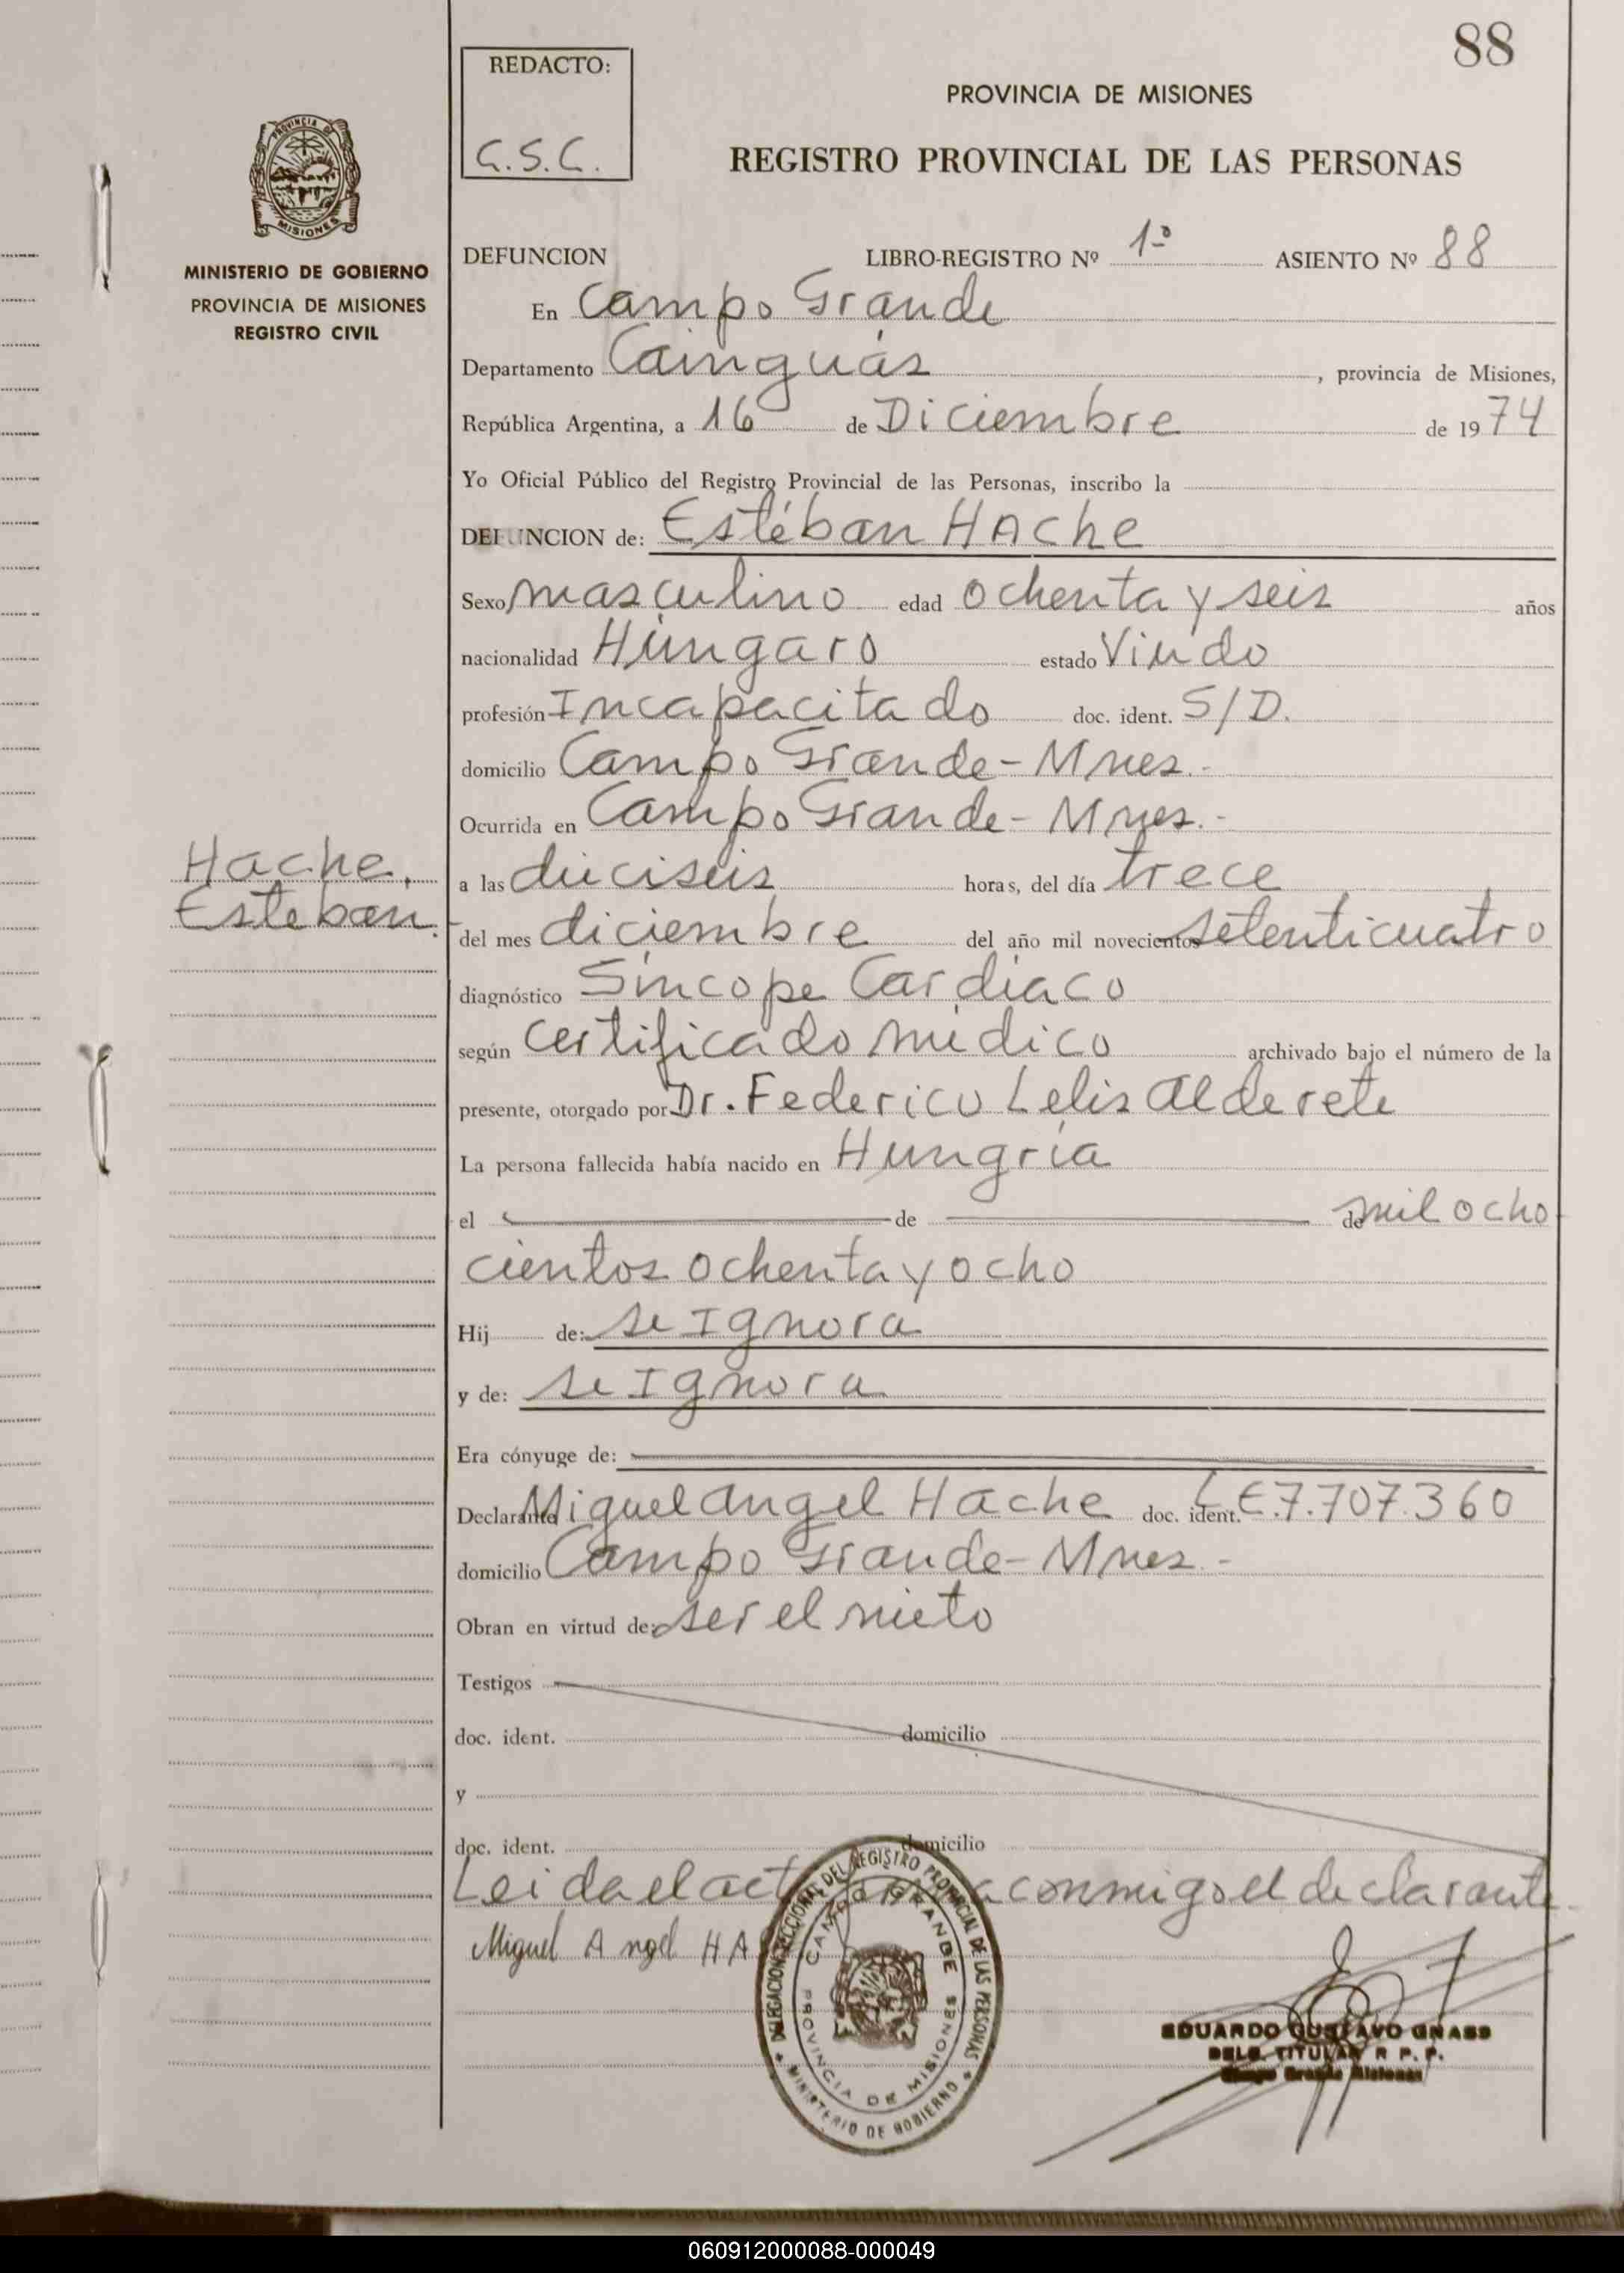 88
REDACTO:
G.S.C.
PROVINCIA DE MISIONES
REGISTRO PROVINCIAL DE LAS PERSONAS
PROVINCIA DE
MISIONES
MINISTERIO DE GOBIERNO
PROVINCIA DE MISIONES
REGISTRO CIVIL
DEFUNCION LIBRO-REGISTRO Nº 1º ASIENTO Nº 88
En Campo Grande
Departamento Cainguás, provincia de Misiones,
República Argentina, a 16 de Diciembre de 1974
Yo Oficial Público del Registro Provincial de las Personas, inscribo la
DEFUNCION de: Estéban HAche
Sexo masculino edad ochenta y seis años
nacionalidad Húngaro estado Viudo
profesión Incapacitado doc. ident. S/D.
domicilio Campo Grande - Mnes.-
Ocurrida en Campo Grande - Mnes.-
Hache,
Esteban.
a las dieciseis horas, del día trece
del mes diciembre del año mil novecientos setenticuatro
diagnóstico Síncope Cardíaco
según certificado médico archivado bajo el número de la
presente, otorgado por Dr. Federico Lelis Alderete
La persona fallecida había nacido en Hungría
el de de mil ocho
cientos ochenta y ocho
Hij de: se Ignora
y de: se Ignora
Era cónyuge de:
Declarante Miguel Angel Hache doc. ident. L.E.7.707.360
domicilio Campo Grande - Mnes -
Obran en virtud de: ser el nieto
Testigos
doc. ident. domicilio
y
doc. ident. domicilio
Leida el acta conmigo el declarante.
Miguel Angel HA
DELEGACION SECCIONAL DEL REGISTRO PROVINCIAL DE LAS PERSONAS
MINISTERIO DE GOBIERNO
CAMPO GRANDE
PROVINCIA DE MISIONES
EDUARDO GUSTAVO GNASS
DELG. TITULAR R P. P.
Campo Grande Misiones
060912000088-000049